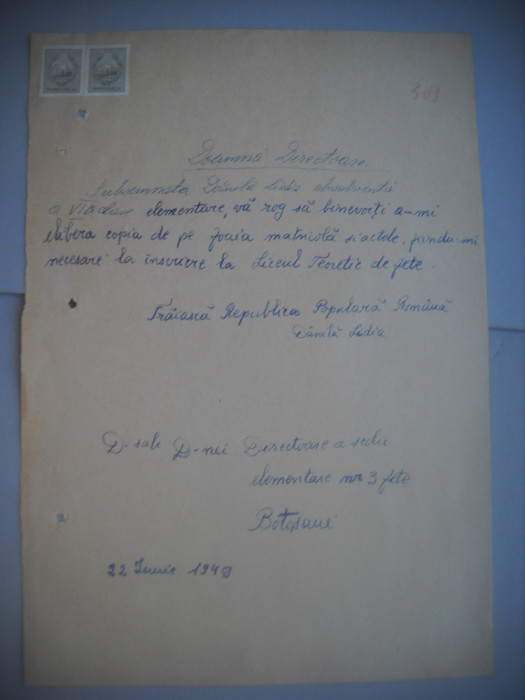 369
Doamnă Directoare
Subsemnata Dănilă Lidia absolventă
a VII a clase elementare, vă rog să binevoiți a-mi
elibera copia de pe foaia matricolă si actele, fiindu-mi
necesare la înscriere la Liceul Teoretic de fete.
Trăiască Republica Populară Română
Dănilă Lidia
D-sale D-nei Directoare a
elementare nr 3 fete
Botoșani
22 Iunie 1949